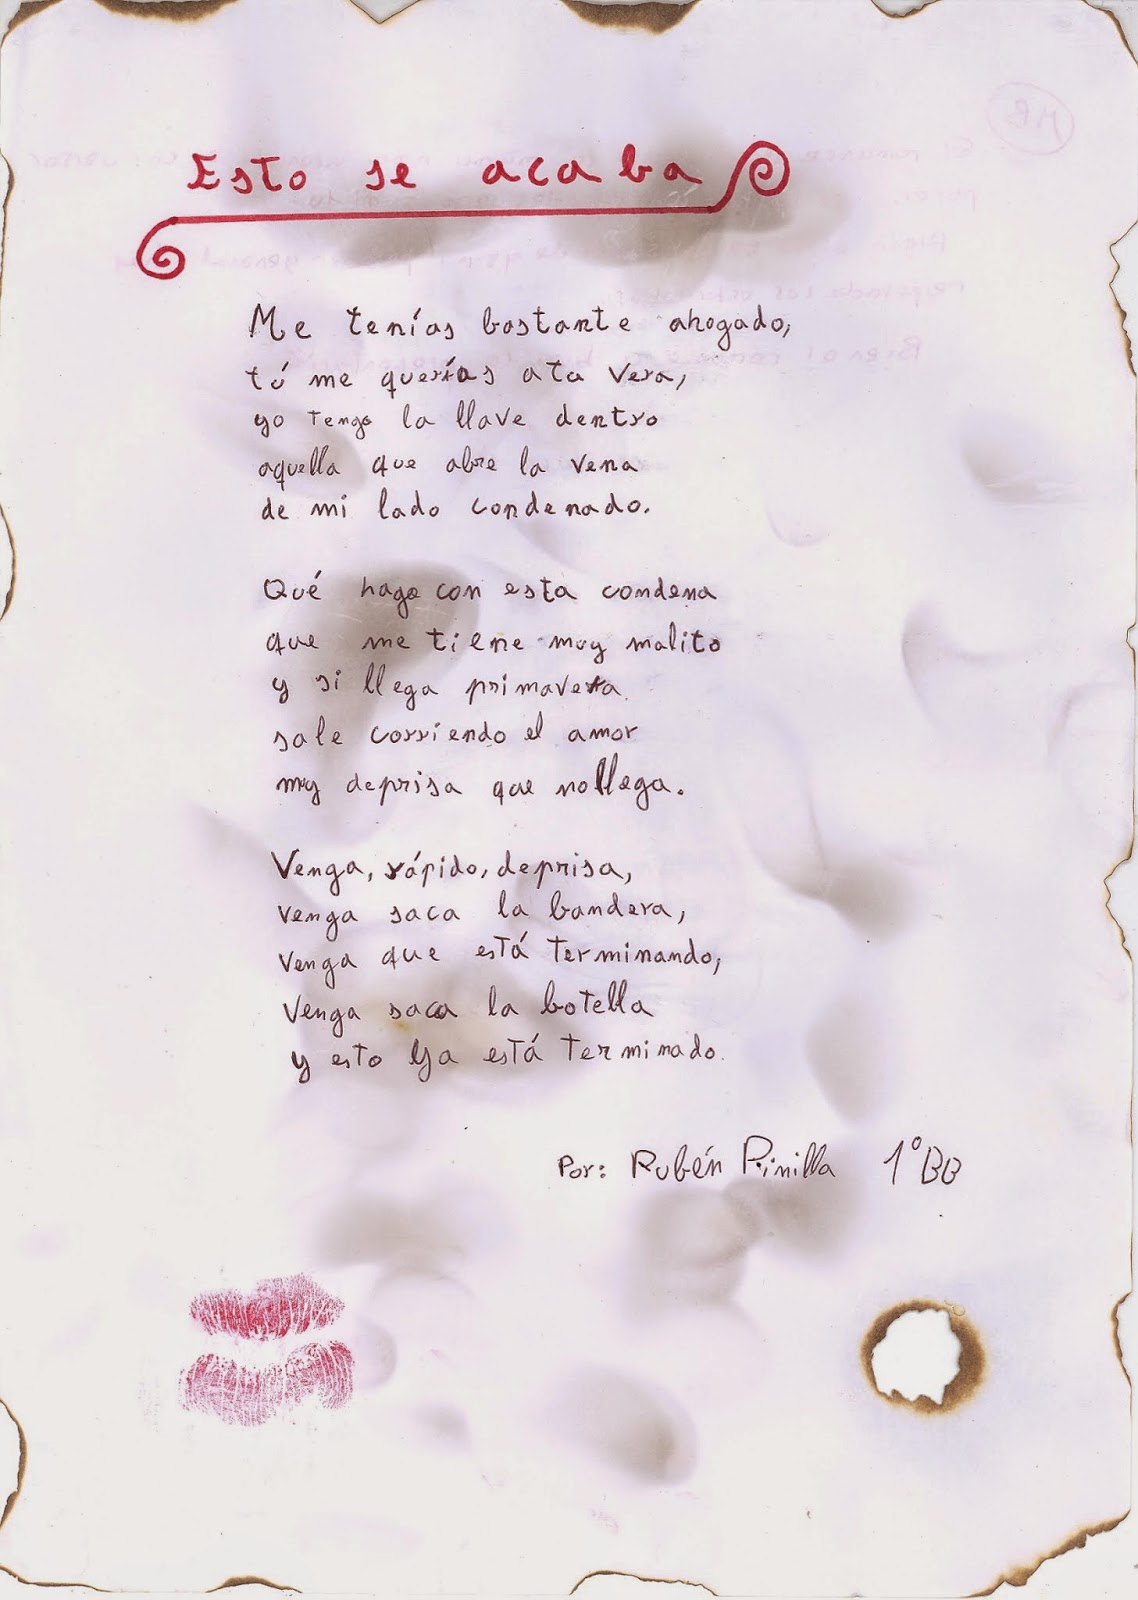 Esto se acaba
Me tenías bastante ahogado,
tú me querías a tu vera,
yo tengo la llave dentro
aquella que abre la vena
de mi lado condenado.
Qué hago con esta condena
que me tiene muy malito
y si llega primavera
sale corriendo el amor
muy deprisa que no llega.
Venga, rápido, deprisa,
venga saca la bandera,
venga que está terminando,
venga saca la botella
y esto ya está terminado.
Por: Rubén Pinilla 1º BB